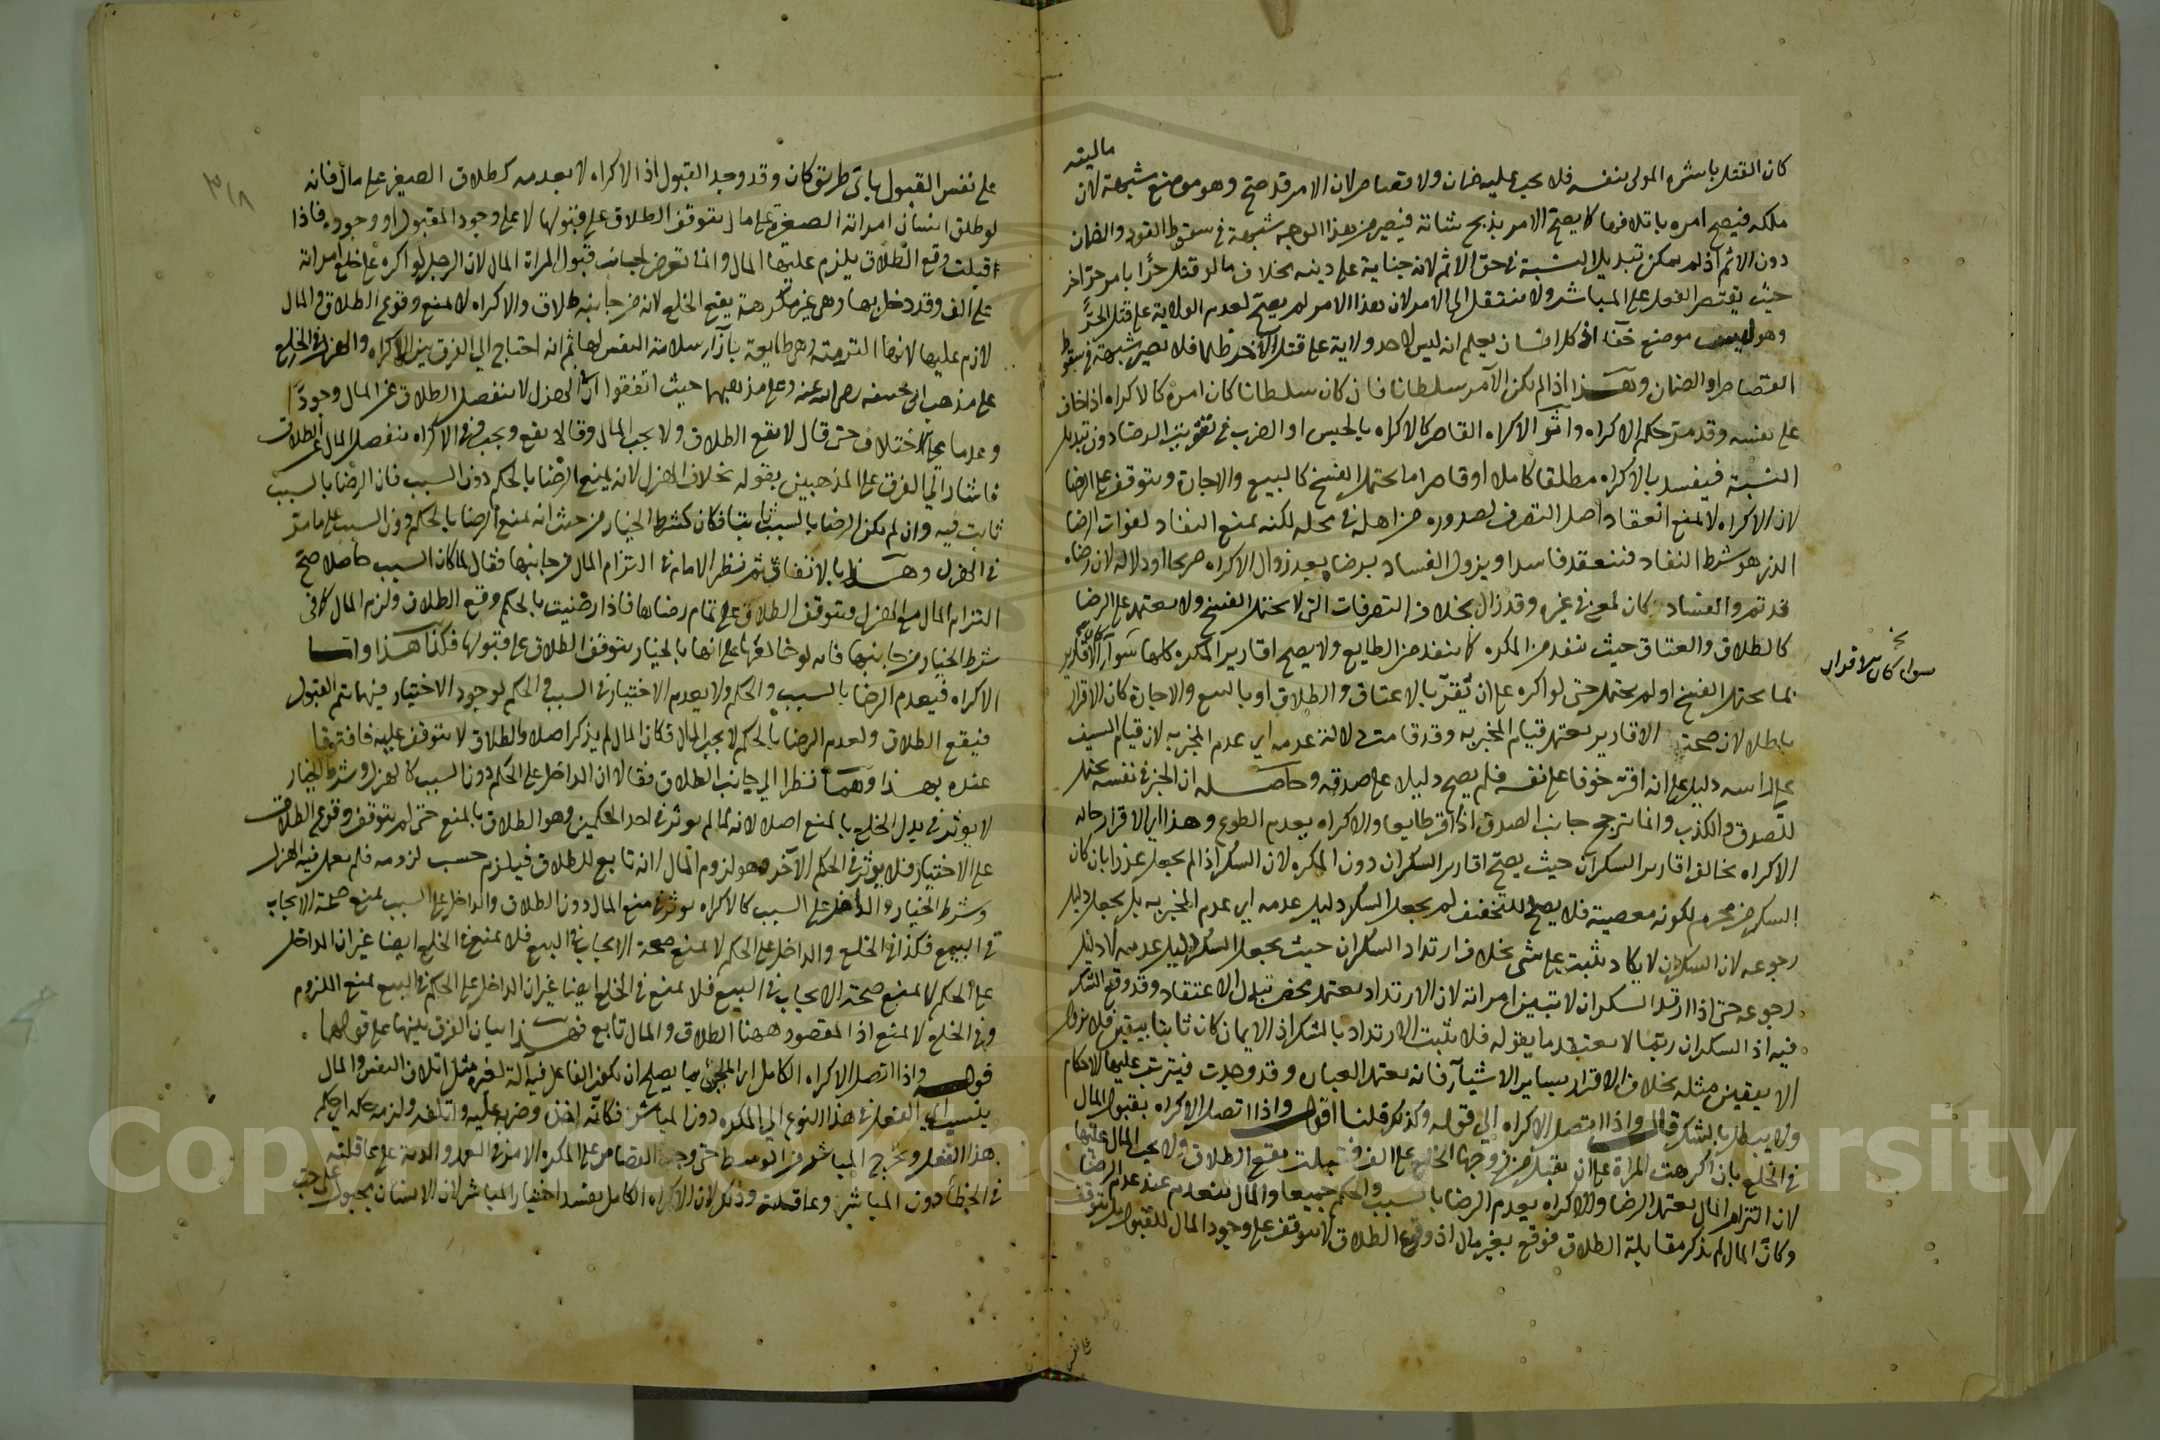 ماليته
كان القتل باشره المولى بنفسه فلا يجب عليه ضمان ولا قصاص لان الامر قد صح وهو موضع شبهة لان
ملكه فيصح امره باتلافها كما يصح الامر بذبح شاته فيصير من هذا الوجه شبهة في سقوط القود والضمان
دون الاثم اذ لم يمكن تبديل النسبة في حق الاثم لانه جناية على دينه بخلاف ما لو قتل حرا بامر حر اخر
حيث يقتصر الفعل على المباشر ولا ينتقل الى الامر لان هذا الامر لم يصح لعدم الولاية على قتل الحر
وهو ليس موضع خفاء اذ كل انسان يعلم انه ليس لاحد ولاية على قتل الآخر ظلما فلا يصير شبهة في سقوط
القصاص او الضمان وهذا اذا لم يكن الآمر سلطانا فان كان سلطانا كان امره كالاكراه اذا خاف
على نفسه وقد مر حكم الاكراه واثر الاكراه القاصر كالاكراه بالحبس او الضرب في تفويت الرضا دون تبديل
النسبة فيفسد بالاكراه مطلقا كاملا او قاصرا ما يحتمل الفسخ كالبيع والاجارة ويتوقف على الرضا
لان الاكراه لا يمنع انعقاد اصل التصرف لصدوره من اهله في محله لكنه يمنع النفاذ لفوات الرضا
الذي هو شرط النفاذ فينعقد فاسدا ويزول الفساد برضاه بعد زوال الاكراه صريحا او دلالة لان رضاه
قد تم والفساد كان لمعنى في غيره وقد زال بخلاف التصرفات التي لا تحتمل الفسخ ولا يعتمد على الرضا
كالطلاق والعتاق حيث ينفذ من المكره كما ينفذ من الطايع ولا يصح اقارير المكره كلها سواء كان الاقرار
سواء كان الاقرار
بما يحتمل الفسخ او لم يحتمل حتى لو اكره على ان يقر بالاعتاق والطلاق او بالبيع والاجارة كان الاقرار
باطلا لان صحة الاقارير يعتمد قيام المخبر به وقد قامت دلالة عدمه اي عدم المخبر به لان قيام السيف
على راسه دليل على انه اقر خوفا على نفسه فلم يصح دليلا على صدقه وحاصله ان الخبر في نفسه يحتمل
للصدق والكذب وانما ترجح جانب الصدق اذا اقر طايعا والاكراه يعدم الطوع وهذا اي الاقرار حالة
الاكراه يخالف اقارير السكران حيث يصح اقارير السكران دون المكره لان السكر اذا لم يجعل عذرا بان كان
السكر من محرم لكونه معصية فلا يصلح للتخفيف لم يجعل السكر دليل عدمه اي عدم المخبر به بل يجعل دليل
رجوعه لان السكران لا يكاد يثبت على شيء بخلاف ارتداد السكران حيث يجعل السكر دليل عدمه لا دليل
رجوعه حتى اذا ارتد السكران لا تبين امراته لان الارتداد يعتمد محض تبدل الاعتقاد وقد وقع الشك
فيه اذ السكران ربما لا يعتقد ما يقوله فلا يثبت الارتداد بالشك اذ الايمان كان ثابتا بيقين فلا يزول
الا بيقين مثله بخلاف الاقرار بساير الاشياء فانه يعتمد العبارة وقد وجدت فيترتب عليها الاحكام
ولا يبطل بالشك قال واذا اتصل الاكراه الى قوله وكذلك قلنا اقول واذا اتصل الاكراه بقبول المال
في الخلع بان اكرهت المراة على ان يقبل من زوجها الخلع على الف فقبلت يقع الطلاق ولا يجب المال عليها
لان التزام المال يعتمد الرضا والاكراه يعدم الرضا بالسبب والحكم جميعا والمال ينعدم عند عدم الرضا
وكان المال لم يذكر مقابلة الطلاق فوقع بغير مال اذ وقوع الطلاق لا يتوقف على وجود المال للقبول بل يتوقف
٣١٨
على نفس القبول باي طريق كان وقد وجد القبول اذ الاكراه لا يعدمه كطلاق الصغيرة على مال فانه
لو طلق انسان امراته الصغيرة على مال يتوقف الطلاق على قبولها لا على وجود المقبول او وجوده فاذا
قبلت وقع الطلاق يلزم عليها المال وانما تعرض لجانب قبول المراة المال لان الرجل لو اكره على خلع امراته
على الف وقد دخل بها وهي غير مكرهة يقع الخلع لانه من جانبه طلاق والاكراه لا يمنع وقوع الطلاق والمال
لازم عليها لانها التزمته وهي طايعة بازاء سلامة النفس لها ثم انه احتاج الى الفرق بين الاكراه والهزل في الخلع
على مذهب ابي حنيفة رضي الله عنه وعلى مذهبهما حيث اتفقوا ان في الهزل لا ينفصل الطلاق عن المال وجودا
وعدما على الاختلاف حتى قال لا يقع الطلاق ولا يجب المال وقالا يقع ويجب وفي الاكراه ينفصل المال عن الطلاق
فاشار الى الفرق على المذهبين بقوله بخلاف الهزل لانه يمنع الرضا بالحكم دون السبب فان الرضا بالسبب
ثابت فيه وان لم يكن الرضا بالسبب ثابتا فكان كشرط الخيار من حيث انه يمنع الرضا بالحكم دون السبب على ما مر
في الهزل وهذا بالاتفاق ثم نظر الامام في التزام المال من جانبها فقال لما كان السبب حاصلا صح
التزام المال مع الهزل ويتوقف الطلاق على تمام رضاها فاذا رضيت بالحكم وقع الطلاق ولزم المال كما في
شرط الخيار من جانبها فانه لو خالعها على انها بالخيار يتوقف الطلاق على قبولها فكذا هذا واما
الاكراه فيعدم الرضا بالسبب والحكم ولا يعدم الاختيار في السبب والحكم لوجود الاختيار فيهما يتم القبول
فيقع الطلاق ولعدم الرضا بالحكم لا يجب المال فكان المال لم يذكر اصلا والطلاق لا يتوقف عليه فافترقا
عنده بهذا وهما نظرا الى جانب الطلاق فقالا ان الداخل على الحكم دون السبب كالهزل وشرط الخيار
لا يوثر في بدل الخلع بالمنع اصلا لانه لما لم يوثر في احد الحكمين وهو الطلاق بالمنع حتى لم يتوقف وقوع الطلاق
على الاختيار فلا يوثر في الحكم الآخر وهو لزوم المال لانه تابع للطلاق فيلزم حسب لزومه فلم يعمل فيه الهزل
وشرط الخيار والداخل على السبب كالاكراه يوثر في منع المال دون الطلاق والداخل على السبب يمنع صحة الايجاب
في البيع فكذا في الخلع والداخل على الحكم لا يمنع صحة الايجاب في البيع فلا يمنع في الخلع ايضا غير ان الداخل
على الحكم لا يمنع صحة الايجاب في البيع فلا يمنع في الخلع ايضا غير ان الداخل على الحكم في البيع يمنع اللزوم
وفي الخلع لا يمنع اذ المقصود ههنا الطلاق والمال تابع فهذا بيان الفرق بينهما على قولهما
قوله واذا اتصل الاكراه الكامل اي الملجئ بما يصلح ان يكون الفاعل فيه آلة لغيره مثل اتلاف النفس والمال
ينسب الفعل في هذا النوع الى المكره دون المباشر فكانه اخذه وضربه عليه واتلفه ولزمه حكمه اي حكم
هذا الفعل وخرج المباشر من الوسط حتى وجب القصاص على المكره الامر في العمد والدية على عاقلته
في الخطأ دون المباشر وعاقلته وذلك لان الاكراه الكامل يفسد اختيار المباشر لان الانسان مجبول على حب
Copyright © King Saud University